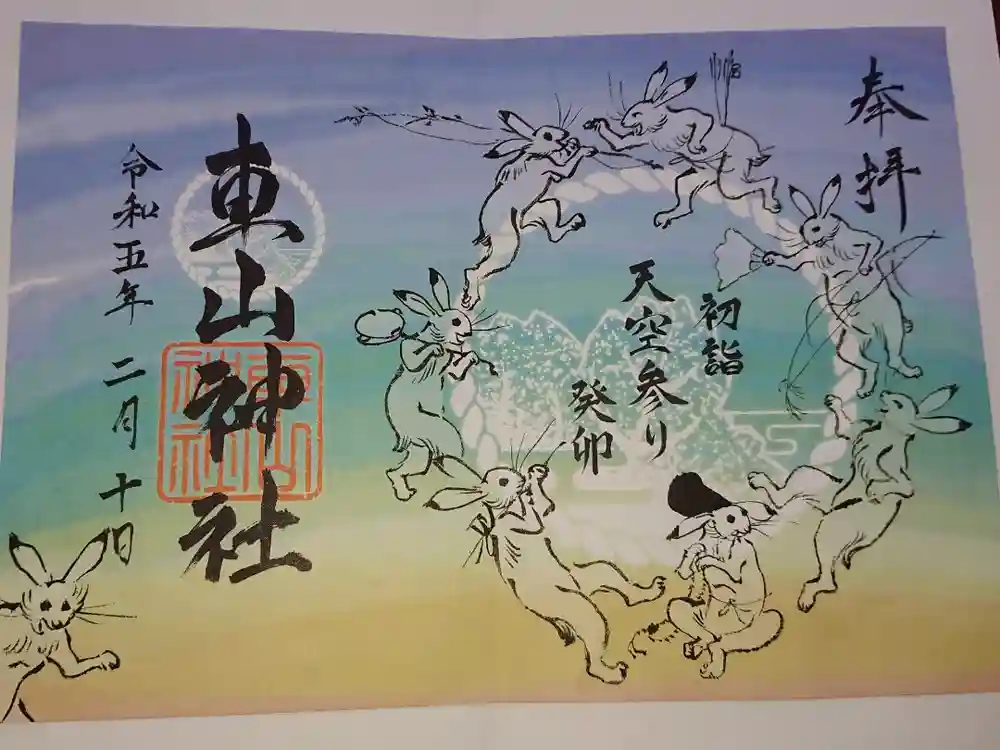 奉拝
初詣
天空参り
癸卯
東山神社
東山神社
令和五年二月十日